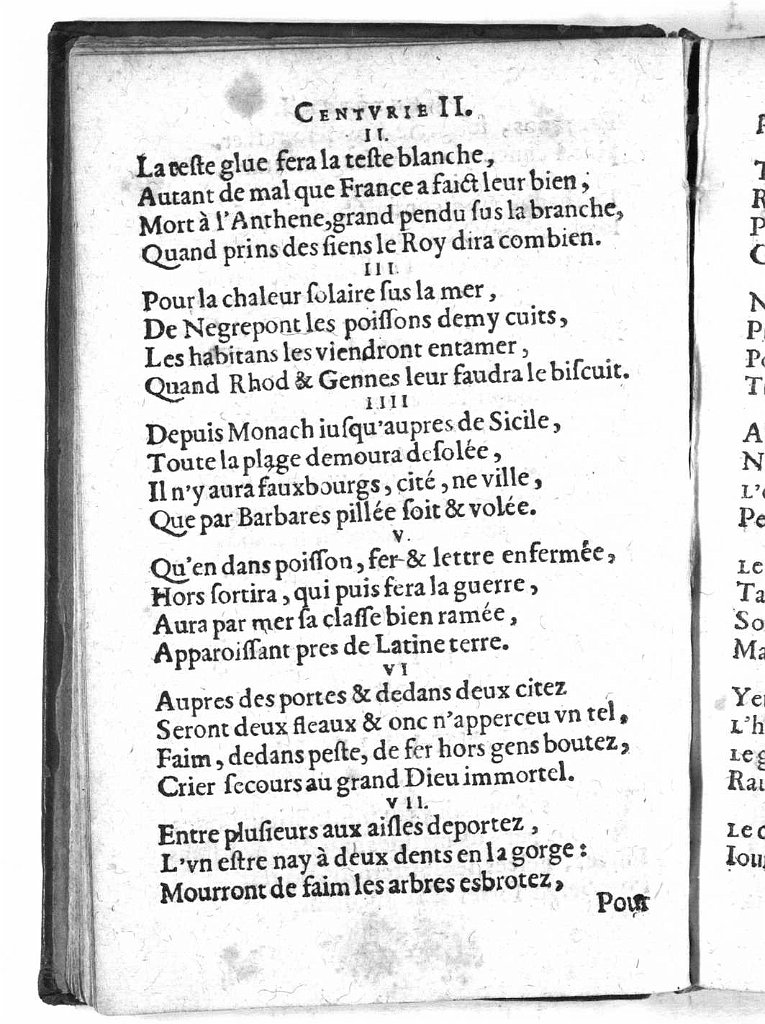 CENTVRIE II.
II.
La teſte glue ſera la teſte blanche,
Autant de mal que France a faict leur bien,
Mort à l'Anthene, grand pendu ſus la branche,
Quand prins des ſiens le Roy dira combien.
III.
Pour la chaleur ſolaire ſus la mer,
De Negrepont les poiſſons demy cuits,
Les habitans les viendront entamer,
Quand Rhod & Gennes leur faudra le biſcuit.
IIII
Depuis Monach iuſqu'aupres de Sicile,
Toute la plage demoura deſolée,
Il n'y aura fauxbourgs, cité, ne ville,
Que par Barbares pillée ſoit & volée.
V.
Qu'en dans poiſſon, fer & lettre enfermée,
Hors ſortira, qui puis fera la guerre,
Aura par mer ſa claſſe bien ramée,
Apparoiſſant pres de Latine terre.
VI
Aupres des portes & dedans deux citez
Seront deux fleaux & onc n'apperceu vn tel,
Faim, dedans peſte, de fer hors gens boutez,
Crier ſecours au grand Dieu immortel.
VII.
Entre pluſieurs aux aiſles deportez,
L'vn eſtre nay à deux dents en la gorge:
Mourront de faim les arbres esbrotez,
Pour